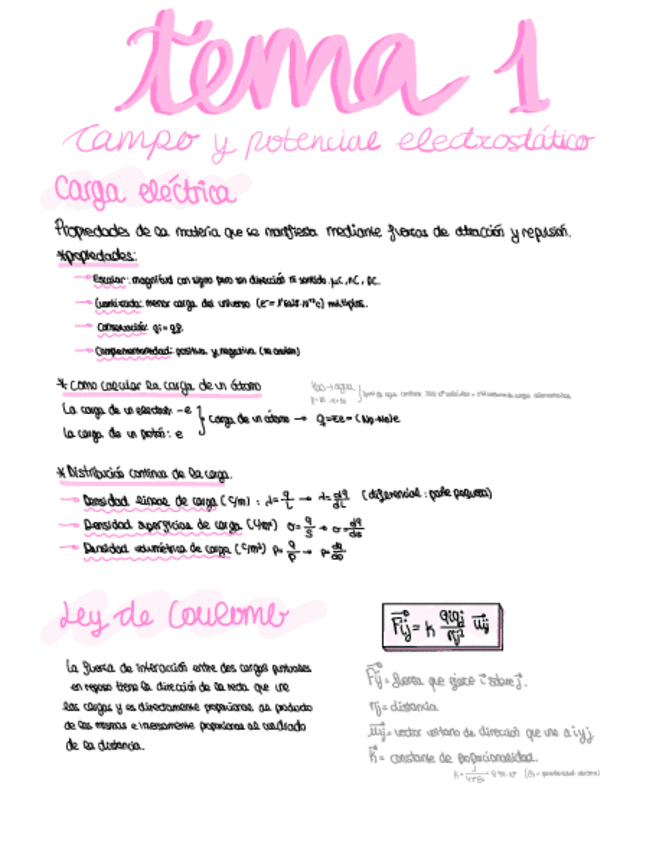 tema 1
Campo y potencial electrostático
Carga eléctrica
Propiedades de la materia que se manifiesta mediante fuerzas de atracción y repulsión.
*Propiedades:
→ Escalar: magnitud con signo pero sin dirección ni sentido. μC, nC, pC.
→ Cuantizada: menor carga del universo múltiplos.
→ Conservación:
→ Complementariedad: positiva y negativa
* Como calcular la carga de un átomo
La carga de un electrón: -e
La carga de un protón: e
Carga de un átomo → Q=Ze=(Np-Ne)e
* Distribución continua de la carga.
→ Densidad lineal de carga (C/m): λ=q/L → λ=dq/dL (diferencial: parte pequeña)
→ Densidad superficial de carga σ=q/S → σ=dq/ds
→ Densidad volumétrica de carga (C/m³)
Ley de Coulomb
La fuerza de interacción entre dos cargas puntuales
en reposo tiene la dirección de la recta que une
las cargas y es directamente proporcional al producto
de las mismas e inversamente proporcional al cuadrado
de la distancia.
Fij = k qiqj/rij² uij
Fij = fuerza que ejerce i sobre j.
rij = distancia
uij = vector unitario de dirección que une a i y j
k = constante de proporcionalidad.